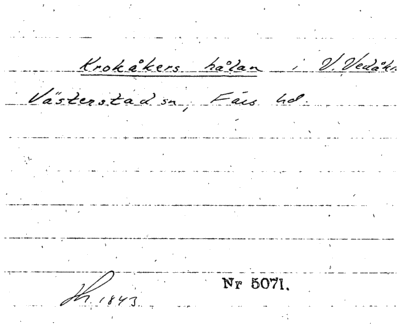 Krokåkers hålan i V. Vedåk
Västerstad sn, Färs hd.
Nr 5071.
1843